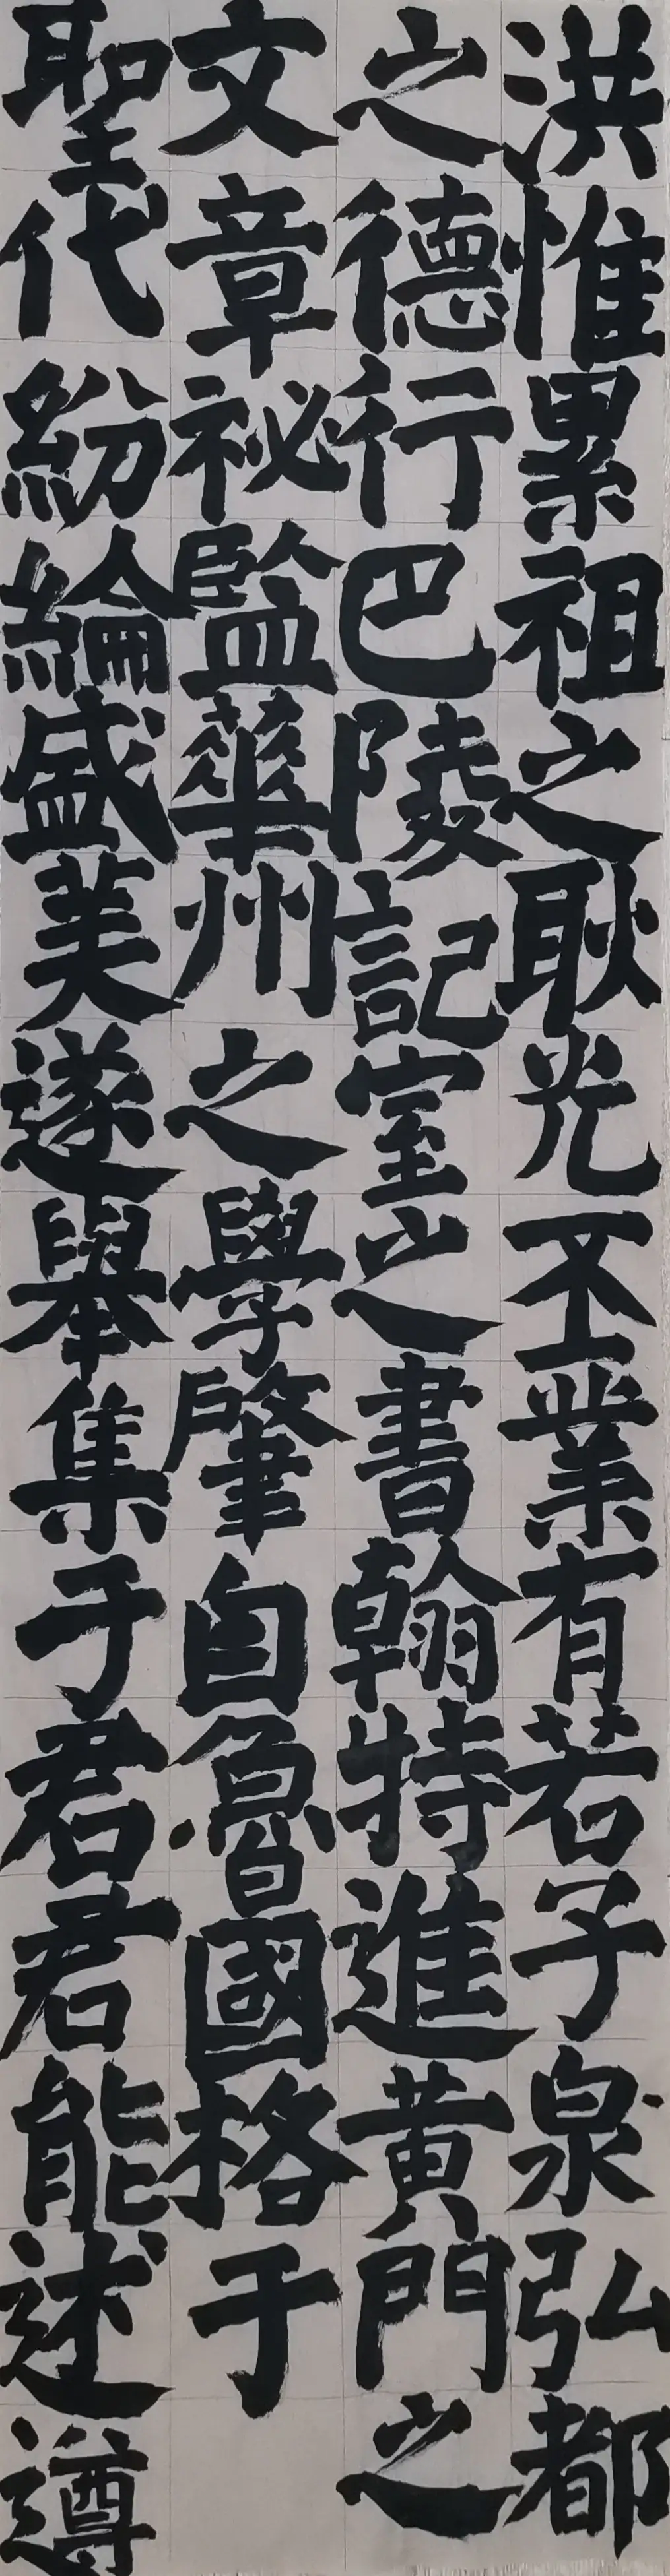 洪惟累祖之耿光丕業有若子泉弘都
之德行巴陵記室之書翰特進黃門之
文章祕監華州之學肇自魯國格于
聖代紛綸盛美遂舉集于君君能述遵